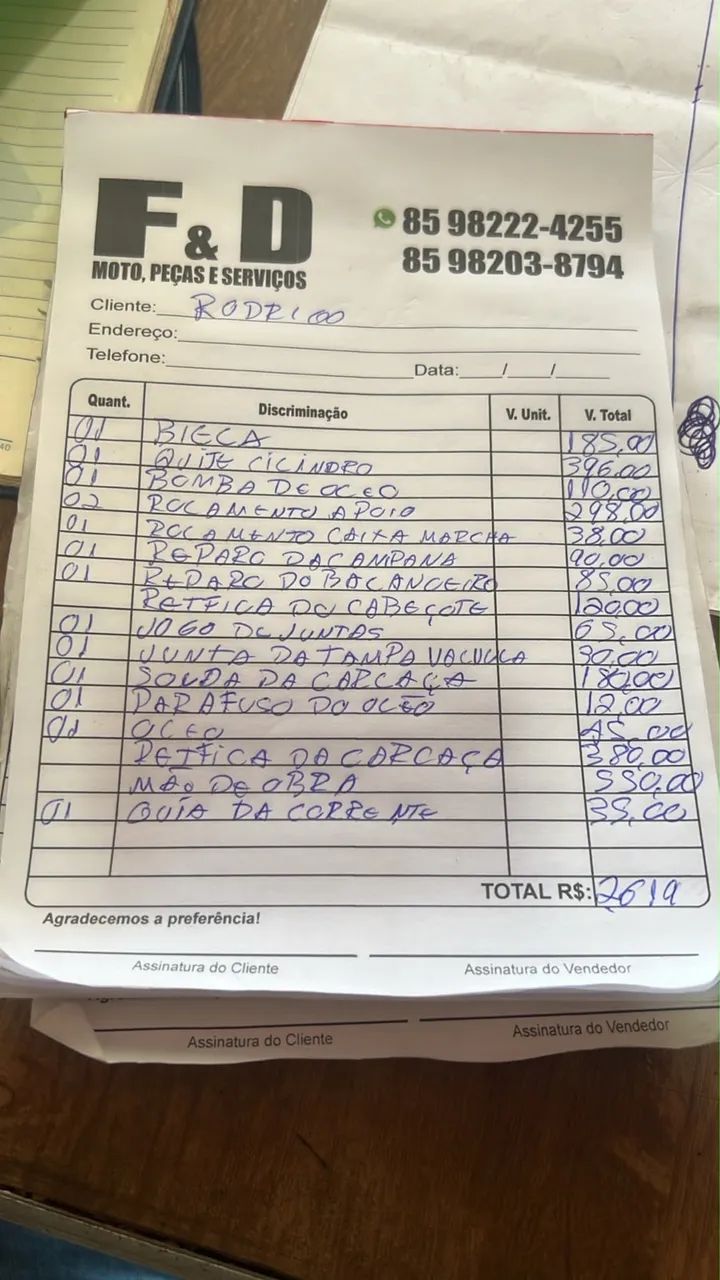 F & D
MOTO, PEÇAS E SERVIÇOS
85 98222-4255
85 98203-8794
Cliente: RODRIGO
Endereço:
Telefone:
Data: / /
Quant. Discriminação V. Unit. V. Total
01 BIELA 185,00
01 QUITE CILINDRO 396,00
01 BOMBA DE OLEO 110,00
02 ROLAMENTO APOIO 298,00
01 ROLAMENTO CAIXA MARCHA 38,00
01 REPARO DA CAMPANA 90,00
01 REPARO DO BALANCEIRO 85,00
RETFICA DO CABEÇOTE 120,00
01 JOGO DE JUNTAS 65,00
01 JUNTA DA TAMPA VALVULA 30,00
01 SOLDA DA CARCAÇA 180,00
01 PARAFUSO DO OLEO 12,00
01 OLEO 45,00
RETFICA DA CARCAÇA 380,00
MÃO DE OBRA 550,00
01 GUIA DA CORRENTE 35,00
TOTAL R$: 2619
Agradecemos a preferência!
Assinatura do Cliente Assinatura do Vendedor
Assinatura do Cliente Assinatura do Vendedor